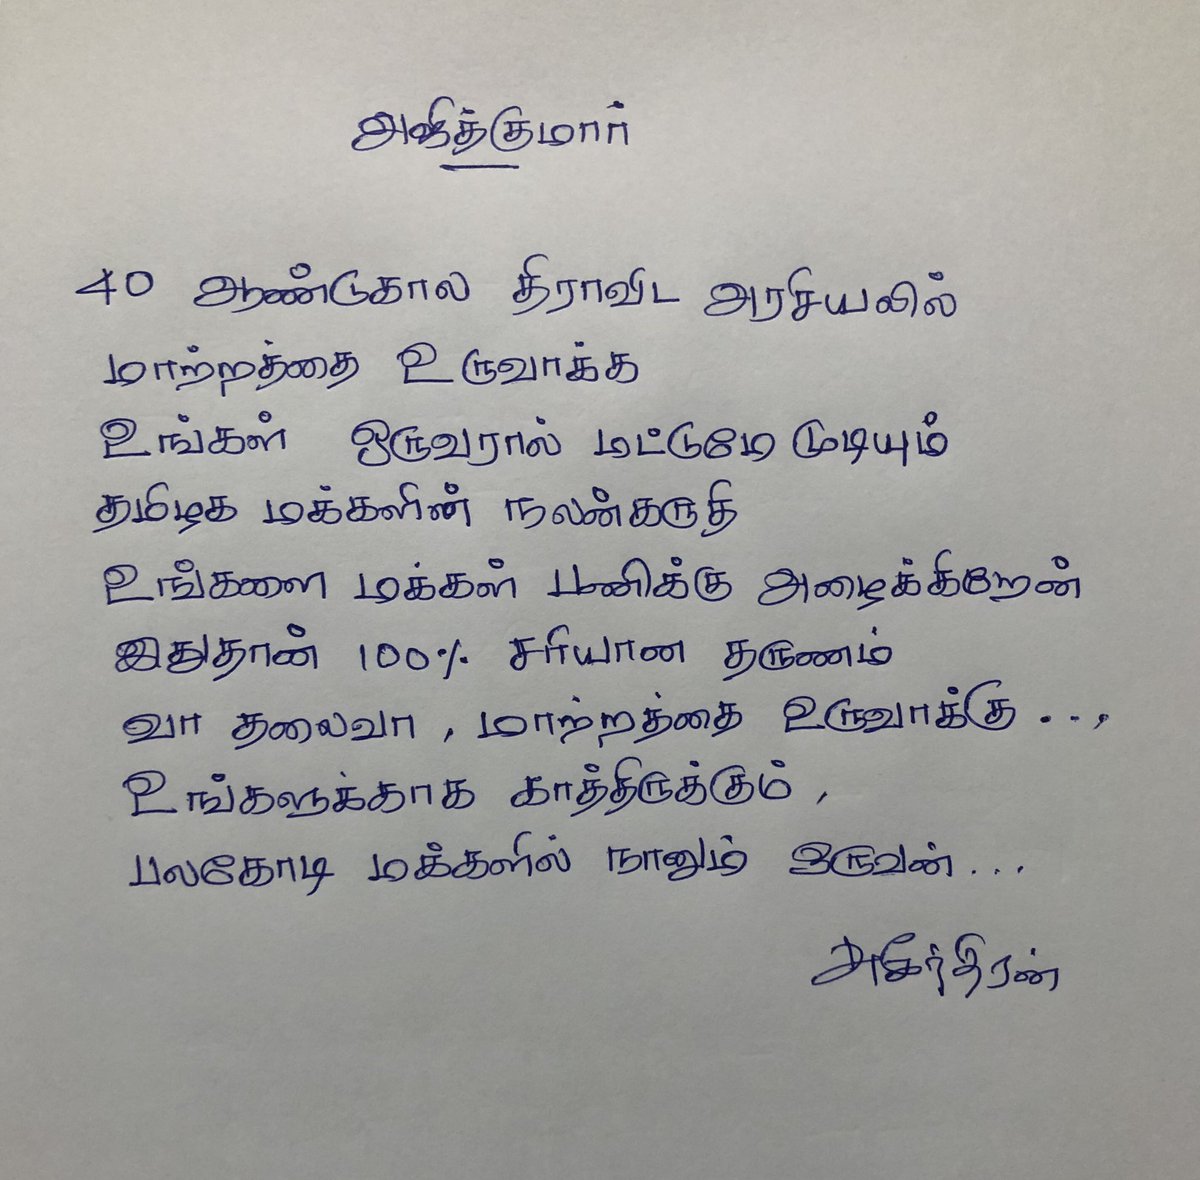 அஜித்குமார்
40 ஆண்டுகால திராவிட அரசியலில்
மாற்றத்தை உருவாக்க
உங்கள் ஒருவரால் மட்டுமே முடியும்
தமிழக மக்களின் நலன்கருதி
உங்களை மக்கள் பனிக்கு அழைக்கிறேன்
இதுதான் 100% சரியான தருணம்
வா தலைவா, மாற்றத்தை உருவாக்கு...,
உங்களுக்காக காத்திருக்கும்,
பலகோடி மக்களில் நானும் ஒருவன்...